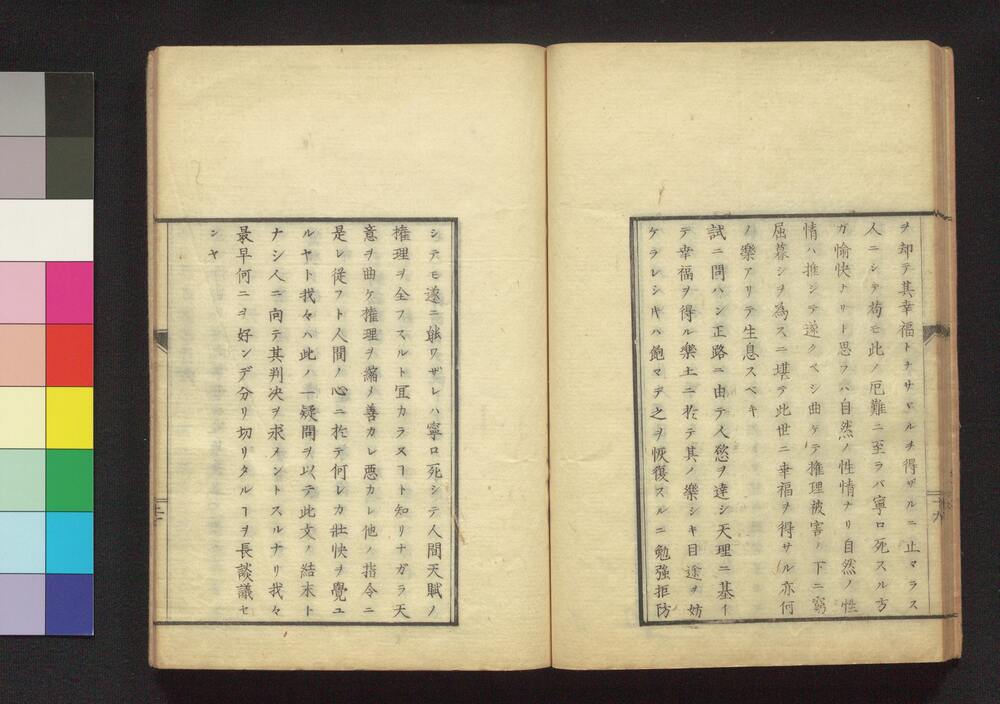 ヲ却テ其幸福トナサヾルヲ得ザルニ止マラス
人ニシテ苟モ此ノ厄難ニ至ラバ寧ロ死スル方
ガ愉快ナリト思フハ自然ノ性情ナリ自然ノ性
情ハ推シテ遂クベシ曲ゲテ権理被害ノ下ニ窮
屈暮シヲ為スニ堪テ此世ニ幸福ヲ得サル亦何
ノ樂アリテ生息スベキ
試ニ問ハン正路ニ由テ人慾ヲ達シ天理ニ基イ
テ幸福ヲ得ル樂土ニ於テ其ノ樂シキ目途ヲ妨
ケラレシキハ飽マデ之ヲ恢復スルニ勉強拒防
シテモ遂ニ能ワザレハ寧ロ死シテ人間天賦ノ
権理ヲ全フスルト冝カラスヿト知リナガラ天
意ヲ曲ケ権理ヲ縮メ善カレ悪カレ他ノ指令ニ
是レ従フト人間ノ心ニ於テ何レカ壮快ヲ覺ユ
ルヤト我々ハ此ノ一疑問ヲ以テ此文ノ結末ト
ナシ人ニ向テ其判决ヲ求メントスルナリ我々
最早何ニヲ好ンデ分リ切リタルヿヲ長談議セ
ンヤ